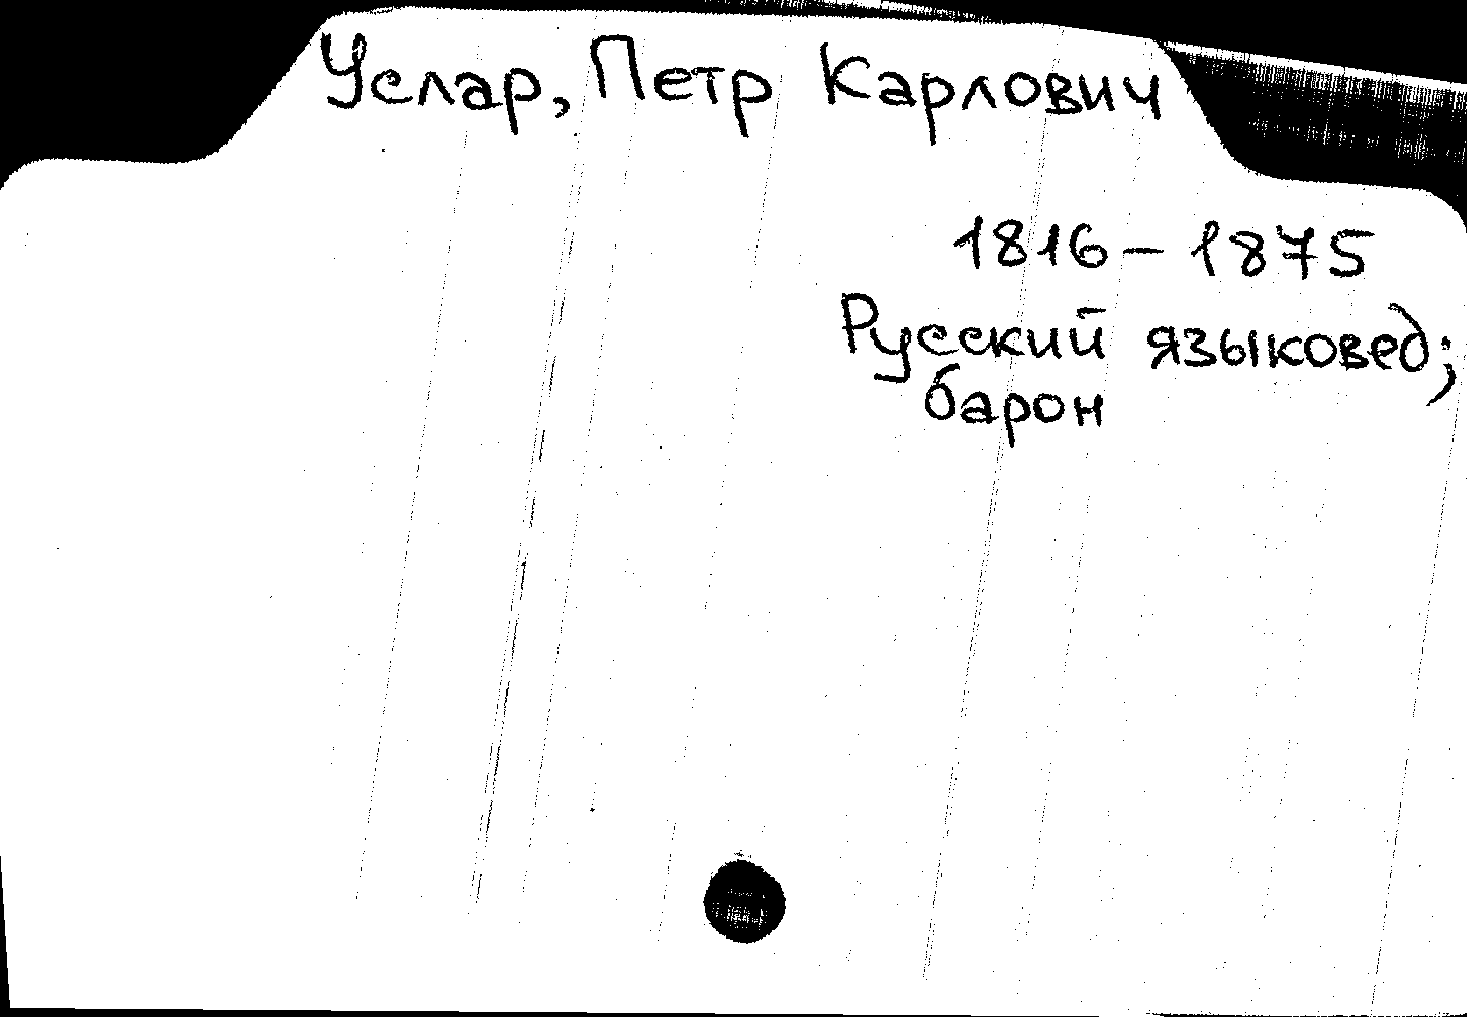 Услар, Петр Карлович
1816 – 1875
Русский языковед;
барон